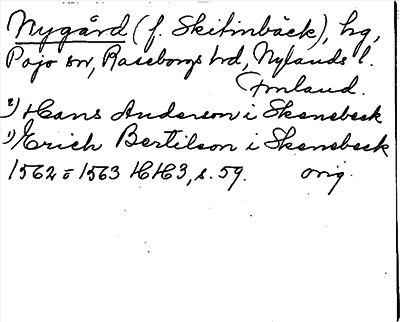 Nygård (f. Skitinbäck), hg,
Pojo sn, Raseborgs hd, Nylands l.
Finland.
2) Hans Anderson i Skenebeck
1) Erich Bertilson i Skenebeck
1562 o 1563 HH3, s. 59. orig.